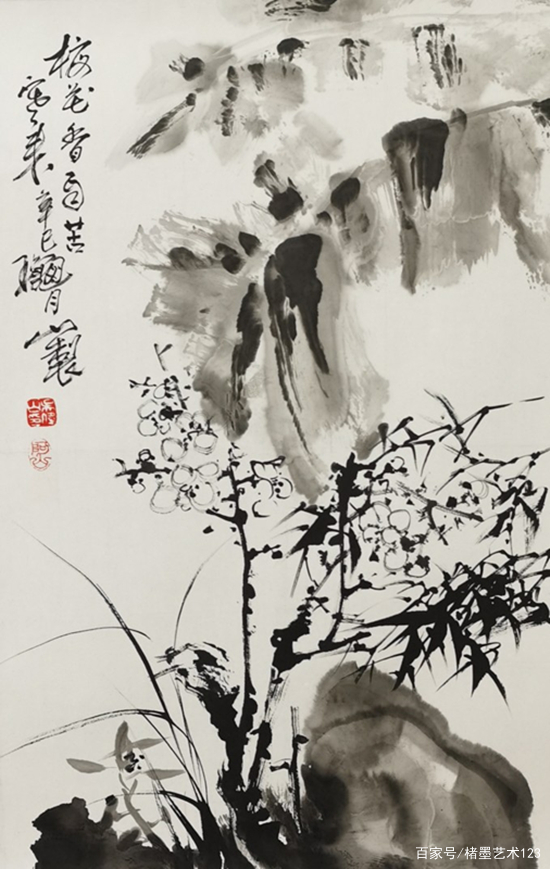 梅花香自苦
寒来辛巳臘月山製
百家号/楮墨艺术123